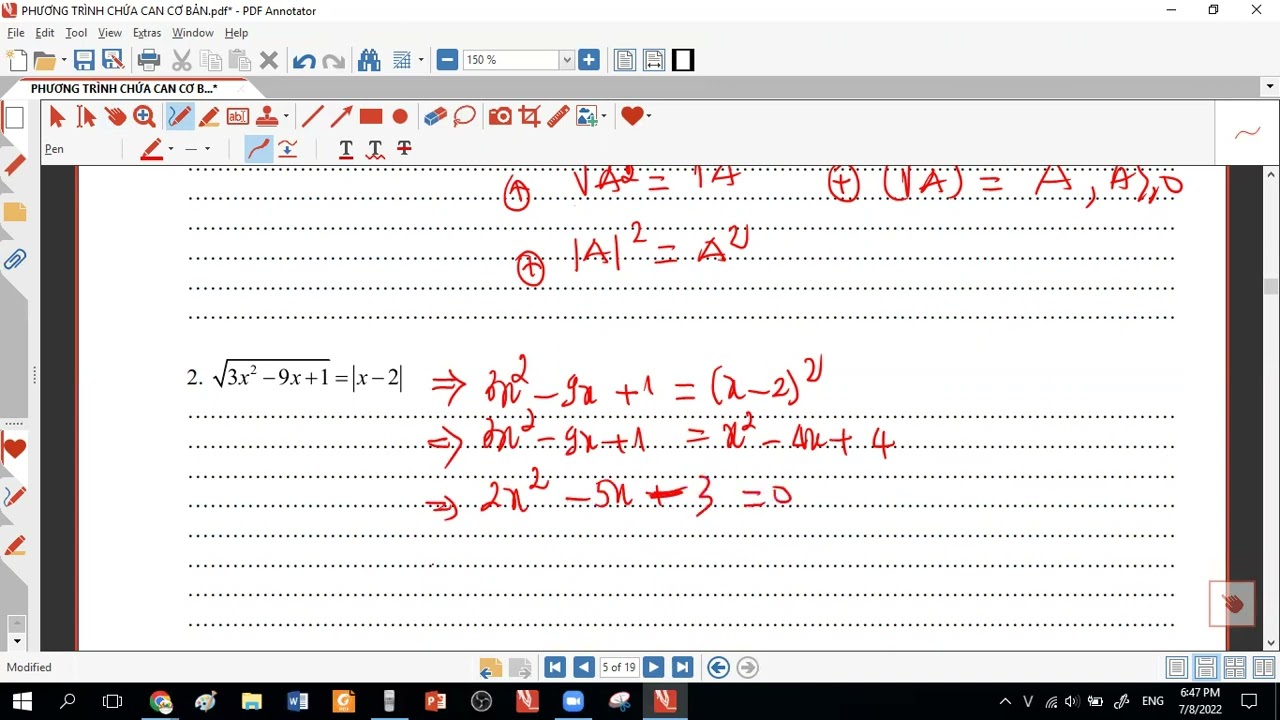 PHƯƠNG TRÌNH CHỨA CAN CƠ BẢN.pdf* - PDF Annotator
File Edit Tool View Extras Window Help
150 %
PHƯƠNG TRÌNH CHỨA CAN CƠ B...*
Pen
⊕ √A² = |A ⊕ (√A) = A, A ≥ 0
⊕ |A|² = A²
2. √(3x² − 9x + 1) = |x − 2| ⇒ 3x² − 9x + 1 = (x − 2)²
⇒ 3x² − 9x + 1 = x² − 4x + 4
⇒ 2x² − 5x − 3 = 0
Modified 5 of 19
ENG 6:47 PM
7/8/2022